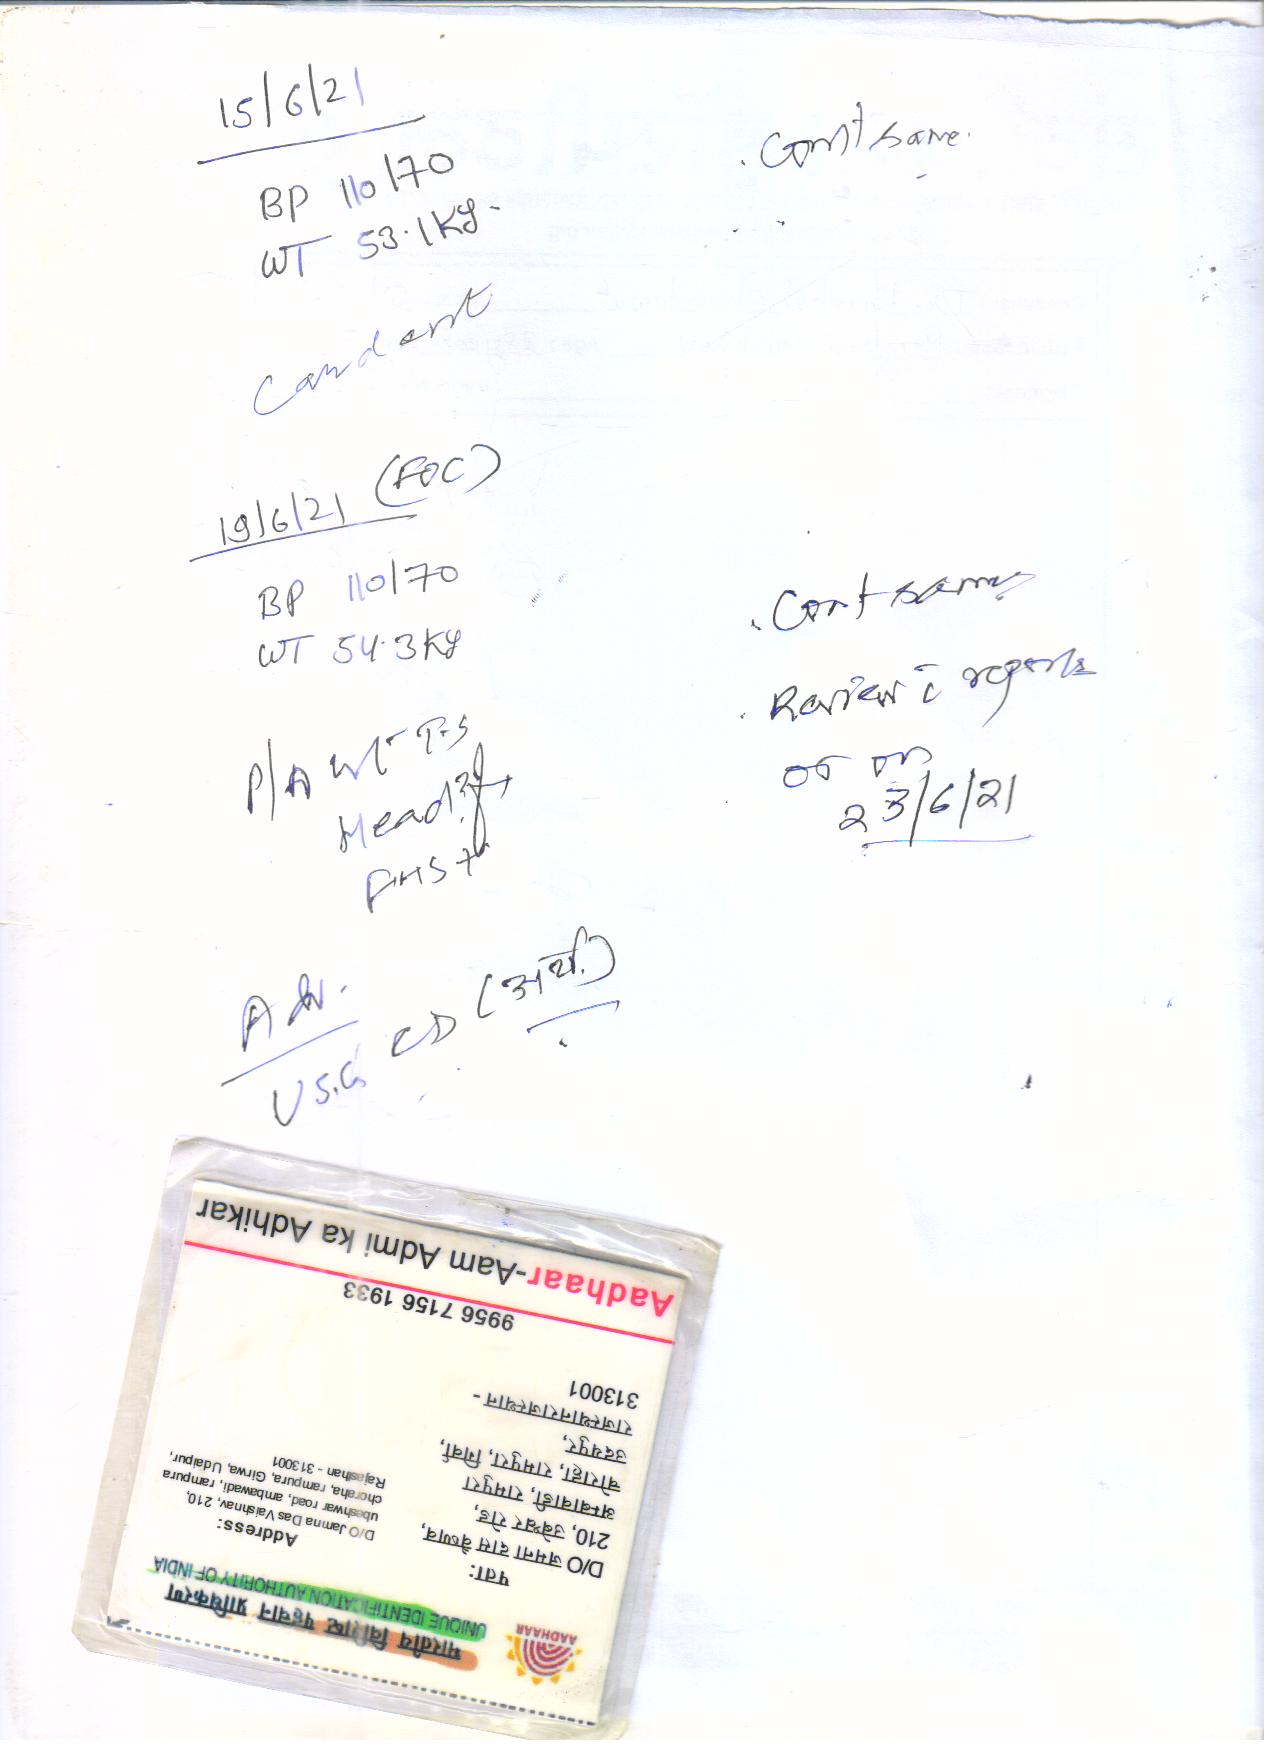 15/6/21
BP 110/70
WT 53.1 Kg.
. Cont same.
19/6/21 (FOC)
BP 110/70
WT 54.3 Kg
P/A
Head
FHS +
. Cont same
. Review c̄ reports
or on
23/6/21
Adv.
USG CD (अर्थ.)
भारतीय विशिष्ट पहचान प्राधिकरण
UNIQUE IDENTIFICATION AUTHORITY OF INDIA
AADHAAR
पता:
D/O जमना दास वैष्णव,
210, उबेश्वर रोड,
अम्बावाडी, रामपुरा
चोराहा, रामपुरा, गिर्वा,
उदयपुर,
राजस्थानराजस्थान -
313001
Address:
D/O Jamna Das Vaishnav, 210,
ubeshwar road, ambawadi, rampura
choraha, rampura, Girwa, Udaipur,
Rajasthan - 313001
9956 7156 1933
Aadhaar-Aam Admi ka Adhikar